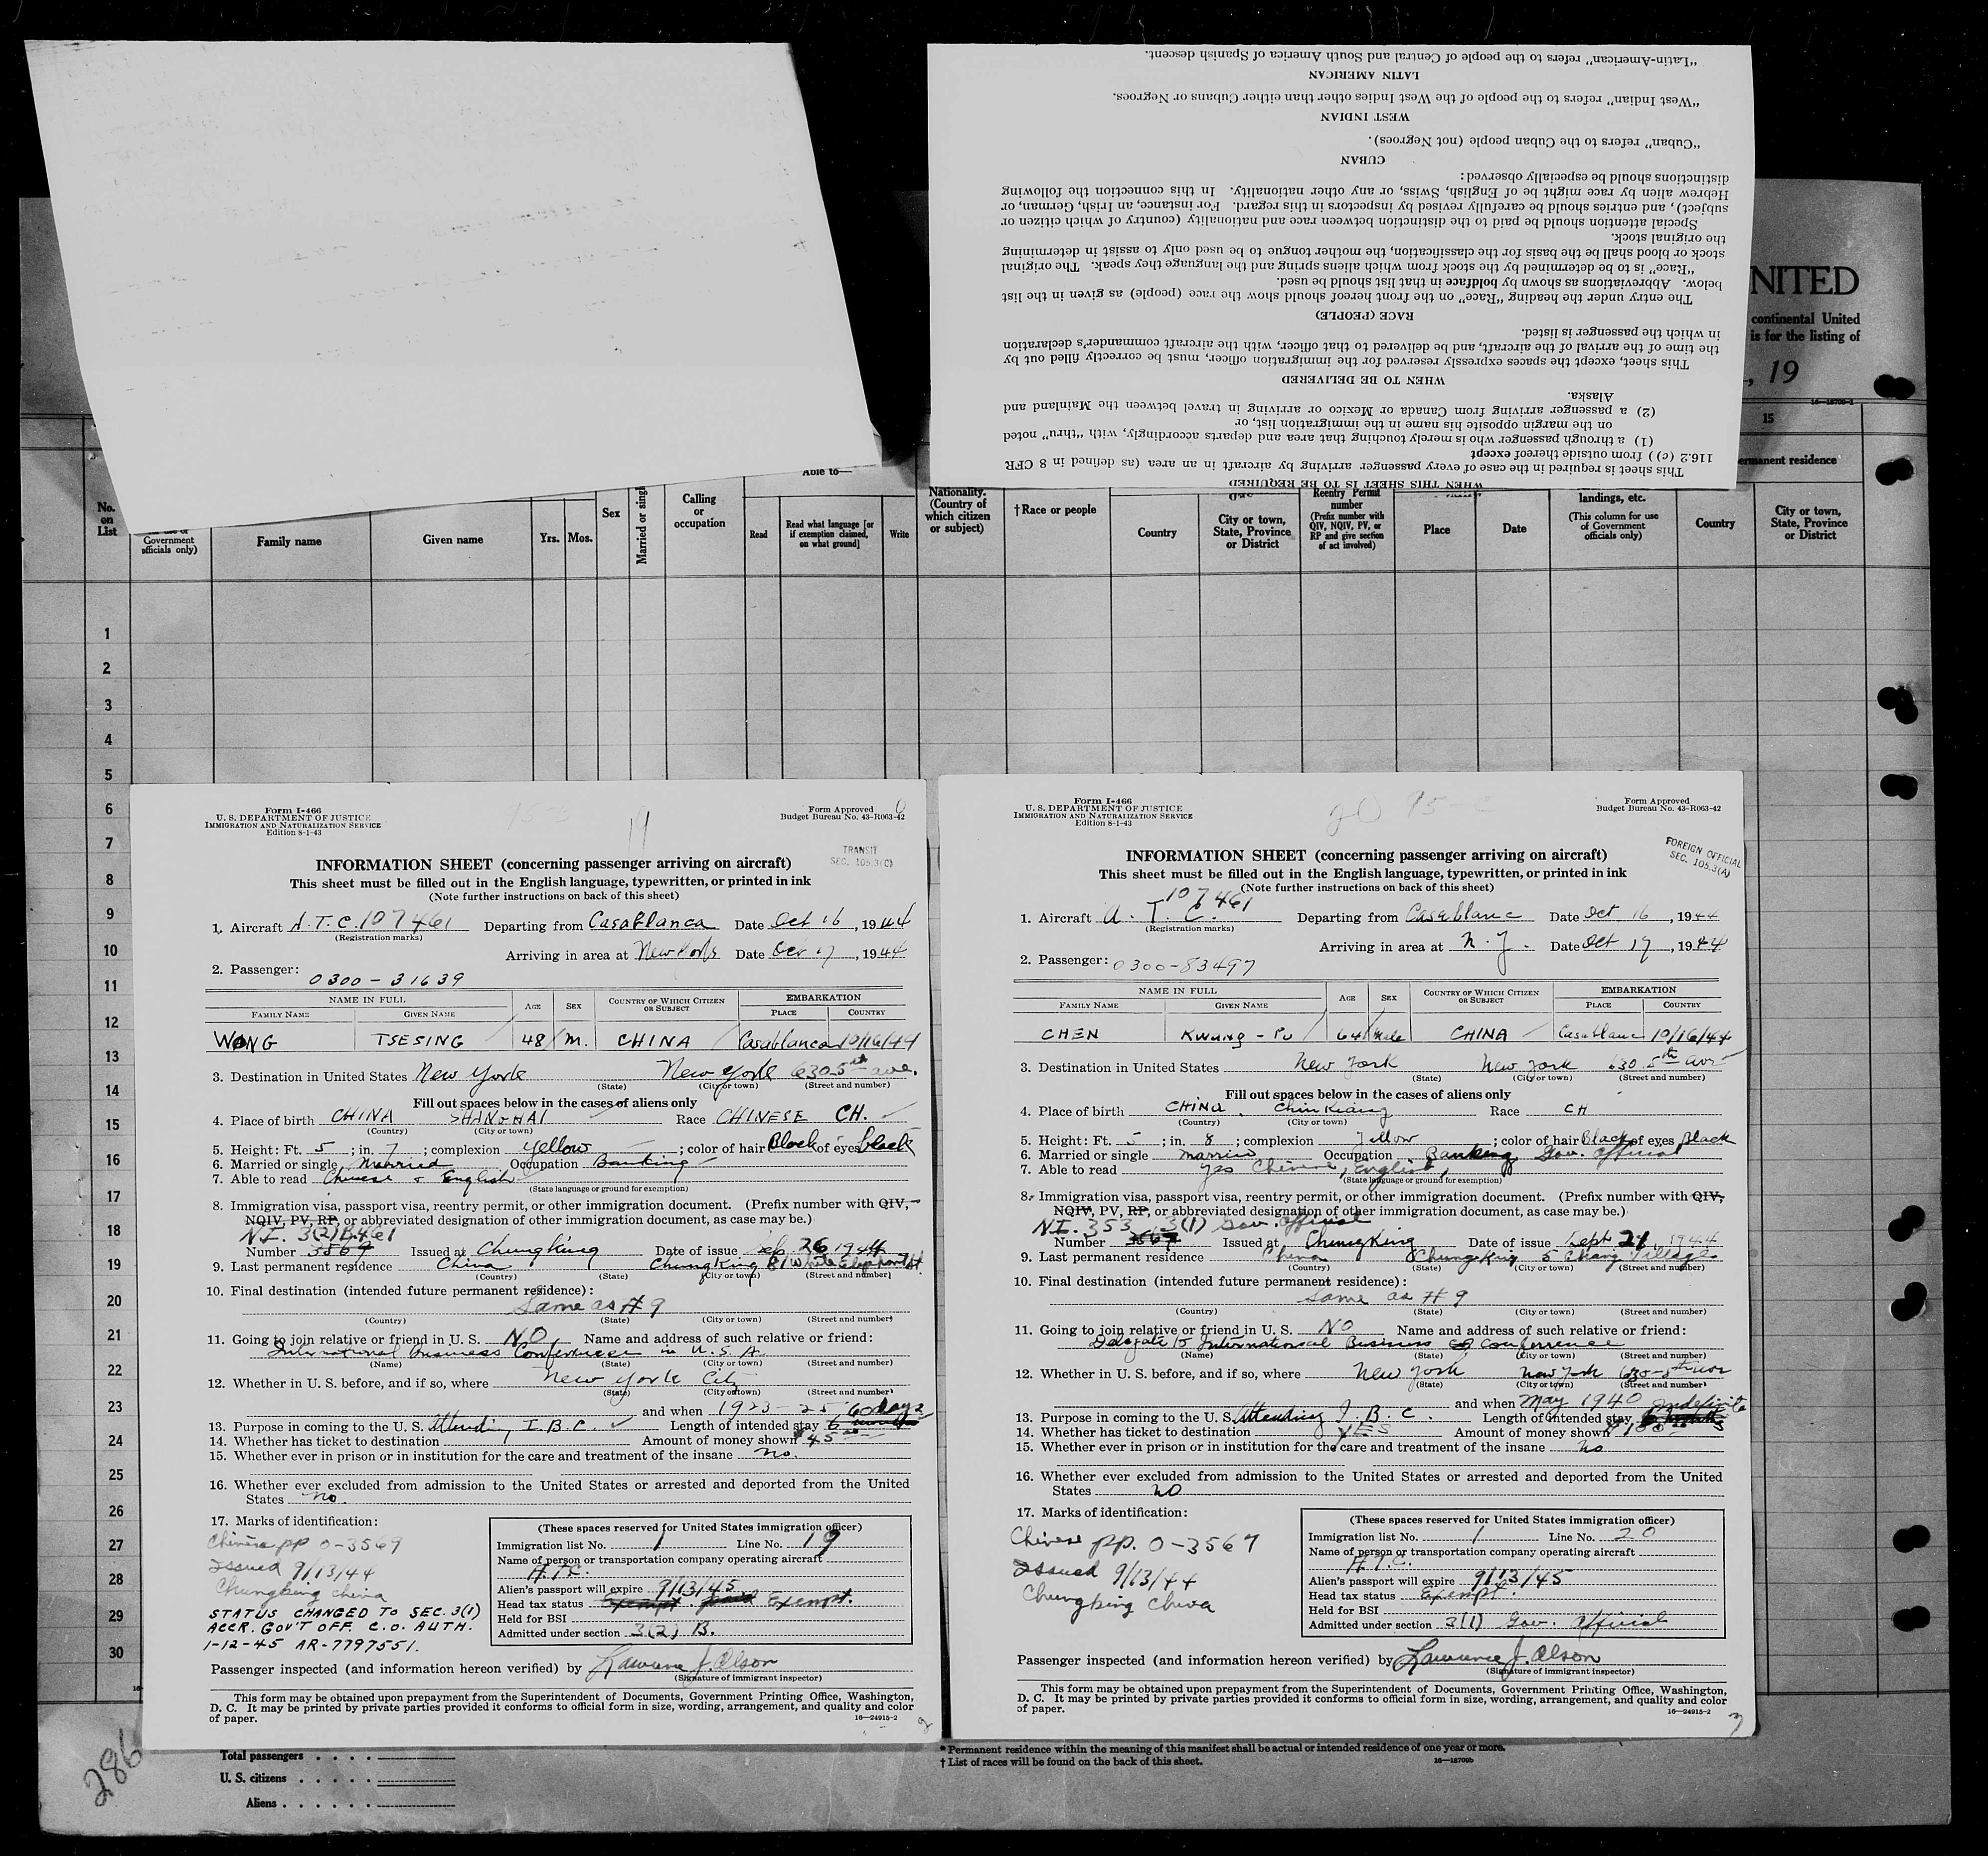 "Latin-American" refers to the people of Central and South America of Spanish descent.
LATIN AMERICAN
"West Indian" refers to the people of the West Indies other than either Cubans or Negroes.
WEST INDIAN
"Cuban" refers to the Cuban people (not Negroes).
CUBAN
distinctions should be especially observed:
Hebrew alien by race might be of English, Swiss, or any other nationality. In this connection the following
subject), and entries should be carefully revised by inspectors in this regard. For instance, an Irish, German, or
Special attention should be paid to the distinction between race and nationality (country of which citizen or
the original stock.
stock or blood shall be the basis for the classification, the mother tongue to be used only to assist in determining
"Race" is to be determined by the stock from which aliens spring and the language they speak. The original
below. Abbreviations as shown by boldface in that list should be used.
The entry under the heading "Race" on the front hereof should show the race (people) as given in the list
RACE (PEOPLE)
in which the passenger is listed.
the time of the arrival of the aircraft, and be delivered to that officer, with the aircraft commander's declaration
This sheet, except the spaces expressly reserved for the immigration officer, must be correctly filled out by
WHEN TO BE DELIVERED
Alaska.
(2) a passenger arriving from Canada or Mexico or arriving in travel between the Mainland and
on the margin opposite his name in the immigration list, or
(1) a through passenger who is merely touching that area and departs accordingly, with "thru" noted
116.2 (c)) from outside thereof except
This sheet is required in the case of every passenger arriving by aircraft in an area (as defined in 8 CFR
WHEN THIS SHEET IS TO BE REQUIRED
NITED
continental United
is for the listing of
, 19
16—18709-1
15
ermanent residence
No. on List
Government officials only)
Family name
Given name
Yrs.
Mos.
Sex
Married or singl
Calling or occupation
Able to—
Read
Read what language [or if exemption claimed, on what ground]
Write
Nationality. (Country of which citizen or subject)
†Race or people
Country
City or town, State, Province or District
Reentry Permit number (Prefix number with QIV, NQIV, PV, or RP and give section of act involved)
Place
Date
landings, etc. (This column for use of Government officials only)
Country
City or town, State, Province or District
1
2
3
4
5
6
7
8
9
10
11
12
13
14
15
16
17
18
19
20
21
22
23
24
25
26
27
28
29
30
Form I-466
U. S. DEPARTMENT OF JUSTICE
IMMIGRATION AND NATURALIZATION SERVICE
Edition 8-1-43
19
Form Approved
Budget Bureau No. 43-R063-42
TRANSIT
SEC. 105.3(C)
INFORMATION SHEET (concerning passenger arriving on aircraft)
This sheet must be filled out in the English language, typewritten, or printed in ink
(Note further instructions on back of this sheet)
1. Aircraft A.T.C. 107461 Departing from Casablanca Date Oct 16, 1944
(Registration marks)
Arriving in area at New York Date Oct 17, 1944
2. Passenger: 0300-31639
NAME IN FULL AGE SEX COUNTRY OF WHICH CITIZEN OR SUBJECT EMBARKATION
FAMILY NAME GIVEN NAME PLACE COUNTRY
WONG TSESING 48 M. CHINA Casablanca 10/16/44
3. Destination in United States New York New York 630 5th ave.
(State) (City or town) (Street and number)
Fill out spaces below in the cases of aliens only
4. Place of birth CHINA SHANGHAI Race CHINESE CH.
(Country) (City or town)
5. Height: Ft. 5; in. 7; complexion yellow; color of hair Black of eyes black
6. Married or single Married Occupation Banking
7. Able to read Chinese & English
(State language or ground for exemption)
8. Immigration visa, passport visa, reentry permit, or other immigration document. (Prefix number with QIV,
NQIV, PV, RP, or abbreviated designation of other immigration document, as case may be.)
N.I. 3(2)B.461
Number 3569 Issued at Chungking Date of issue Sep. 26 1944
9. Last permanent residence China Chungking 81 White Elephant St
(Country) (State) (City or town) (Street and number)
10. Final destination (intended future permanent residence):
Same as # 9
(Country) (State) (City or town) (Street and number)
11. Going to join relative or friend in U. S. NO Name and address of such relative or friend:
International Business Conference in U.S.A.
(Name) (State) (City or town) (Street and number)
12. Whether in U. S. before, and if so, where New York City
(State) (City or town) (Street and number)
and when 1923-25 60 days
13. Purpose in coming to the U. S. Attending I.B.C. Length of intended stay 6 months
14. Whether has ticket to destination Amount of money shown $45
15. Whether ever in prison or in institution for the care and treatment of the insane no.
16. Whether ever excluded from admission to the United States or arrested and deported from the United
States no.
17. Marks of identification:
Chinese pp 0-3569
Issued 9/13/44
Chungking China
STATUS CHANGED TO SEC. 3(1)
ACCR. GOV'T OFF. C.O. AUTH.
1-12-45 AR-7797551.
(These spaces reserved for United States immigration officer)
Immigration list No. 1 Line No. 19
Name of person or transportation company operating aircraft
A.T.C.
Alien's passport will expire 9/13/45
Head tax status Exempt Exempt.
Held for BSI
Admitted under section 3(2) B.
Passenger inspected (and information hereon verified) by Lawrence J. Olson
(Signature of immigrant inspector)
This form may be obtained upon prepayment from the Superintendent of Documents, Government Printing Office, Washington,
D. C. It may be printed by private parties provided it conforms to official form in size, wording, arrangement, and quality and color
of paper.
16—24915-2
2
Form I-466
U. S. DEPARTMENT OF JUSTICE
IMMIGRATION AND NATURALIZATION SERVICE
Edition 8-1-43
20
Form Approved
Budget Bureau No. 43-R063-42
FOREIGN OFFICIAL
SEC. 105.3(A)
INFORMATION SHEET (concerning passenger arriving on aircraft)
This sheet must be filled out in the English language, typewritten, or printed in ink
(Note further instructions on back of this sheet)
1. Aircraft A.T.C. 107461 Departing from Casablanc Date Oct 16, 1944
(Registration marks)
Arriving in area at N.Y. Date Oct 17, 1944
2. Passenger: 0300-83497
NAME IN FULL AGE SEX COUNTRY OF WHICH CITIZEN OR SUBJECT EMBARKATION
FAMILY NAME GIVEN NAME PLACE COUNTRY
CHEN Kwang-Pu 64 Male CHINA Casablanc 10/16/44
3. Destination in United States New York New York 630 5th Ave
(State) (City or town) (Street and number)
Fill out spaces below in the cases of aliens only
4. Place of birth CHINA, Chinkiang Race CH
(Country) (City or town)
5. Height: Ft. 5; in. 8; complexion Yellow; color of hair Black of eyes Black
6. Married or single married Occupation Banking Gov. official
7. Able to read yes Chinese, English,
(State language or ground for exemption)
8. Immigration visa, passport visa, reentry permit, or other immigration document. (Prefix number with QIV,
NQIV, PV, RP, or abbreviated designation of other immigration document, as case may be.)
N.I. 353, 3(1) Gov. official
Number 3567 Issued at Chungking Date of issue Sept 21, 1944
9. Last permanent residence China Chungking 5 Chang Village
(Country) (State) (City or town) (Street and number)
10. Final destination (intended future permanent residence):
same as # 9
(Country) (State) (City or town) (Street and number)
11. Going to join relative or friend in U. S. NO Name and address of such relative or friend:
Delegate to International Business Conference
(Name) (State) (City or town) (Street and number)
12. Whether in U. S. before, and if so, where New York New York 630-5th
(State) (City or town) (Street and number)
and when May 1940 Indefinite
13. Purpose in coming to the U. S. Attending I.B.C. Length of intended stay
14. Whether has ticket to destination YES Amount of money shown $100
15. Whether ever in prison or in institution for the care and treatment of the insane no
16. Whether ever excluded from admission to the United States or arrested and deported from the United
States no
17. Marks of identification:
Chinese pp. 0-3567
Issued 9/13/44
Chungking China
(These spaces reserved for United States immigration officer)
Immigration list No. 1 Line No. 20
Name of person or transportation company operating aircraft
A.T.C.
Alien's passport will expire 9/13/45
Head tax status Exempt.
Held for BSI
Admitted under section 3(1) Gov. Official
Passenger inspected (and information hereon verified) by Lawrence J. Olson
(Signature of immigrant inspector)
This form may be obtained upon prepayment from the Superintendent of Documents, Government Printing Office, Washington,
D. C. It may be printed by private parties provided it conforms to official form in size, wording, arrangement, and quality and color
of paper.
16—24915-2
286
Total passengers
U. S. citizens
Aliens
* Permanent residence within the meaning of this manifest shall be actual or intended residence of one year or more.
† List of races will be found on the back of this sheet.
16—18709b